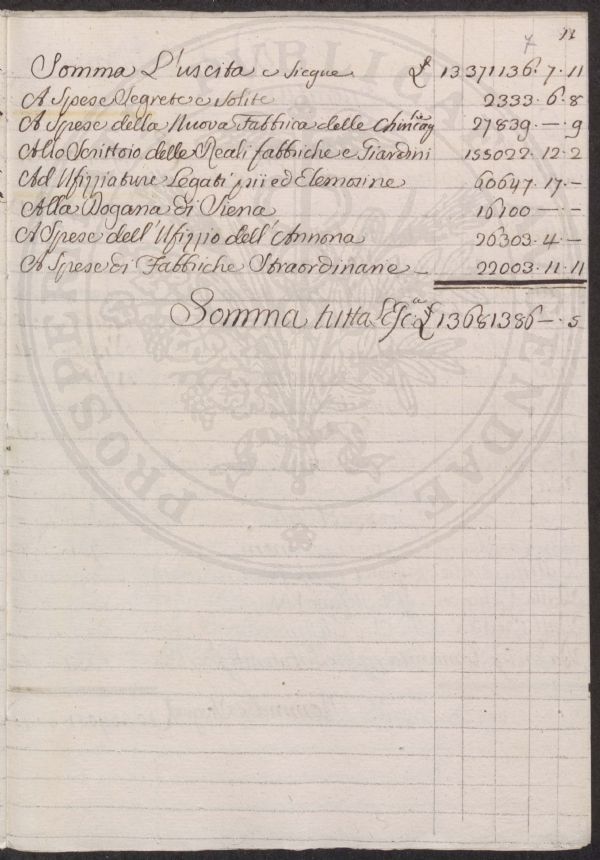 11
7
Somma L'uscita e siegue £ 13371136. 7. 11
A Spese Segrete e solite 2333. 6. 8
A Spese della Nuova Fabbrica delle 27839. —. 9
Allo Scrittoio delle Reali fabbriche e Giardini 155022. 12. 2
Ad Ufizziature Legati pii ed Elemosine 60647. 17. —
Alla Dogana di Siena 16100 — —
A Spese dell'Ufizzio dell'Annona 26303. 4. —
A Spese di Fabbriche Straordinarie — 22003. 11. 11
Somma tutta £ 13681386 —. 5
PUBLICAE
PROSPER
ENDAE